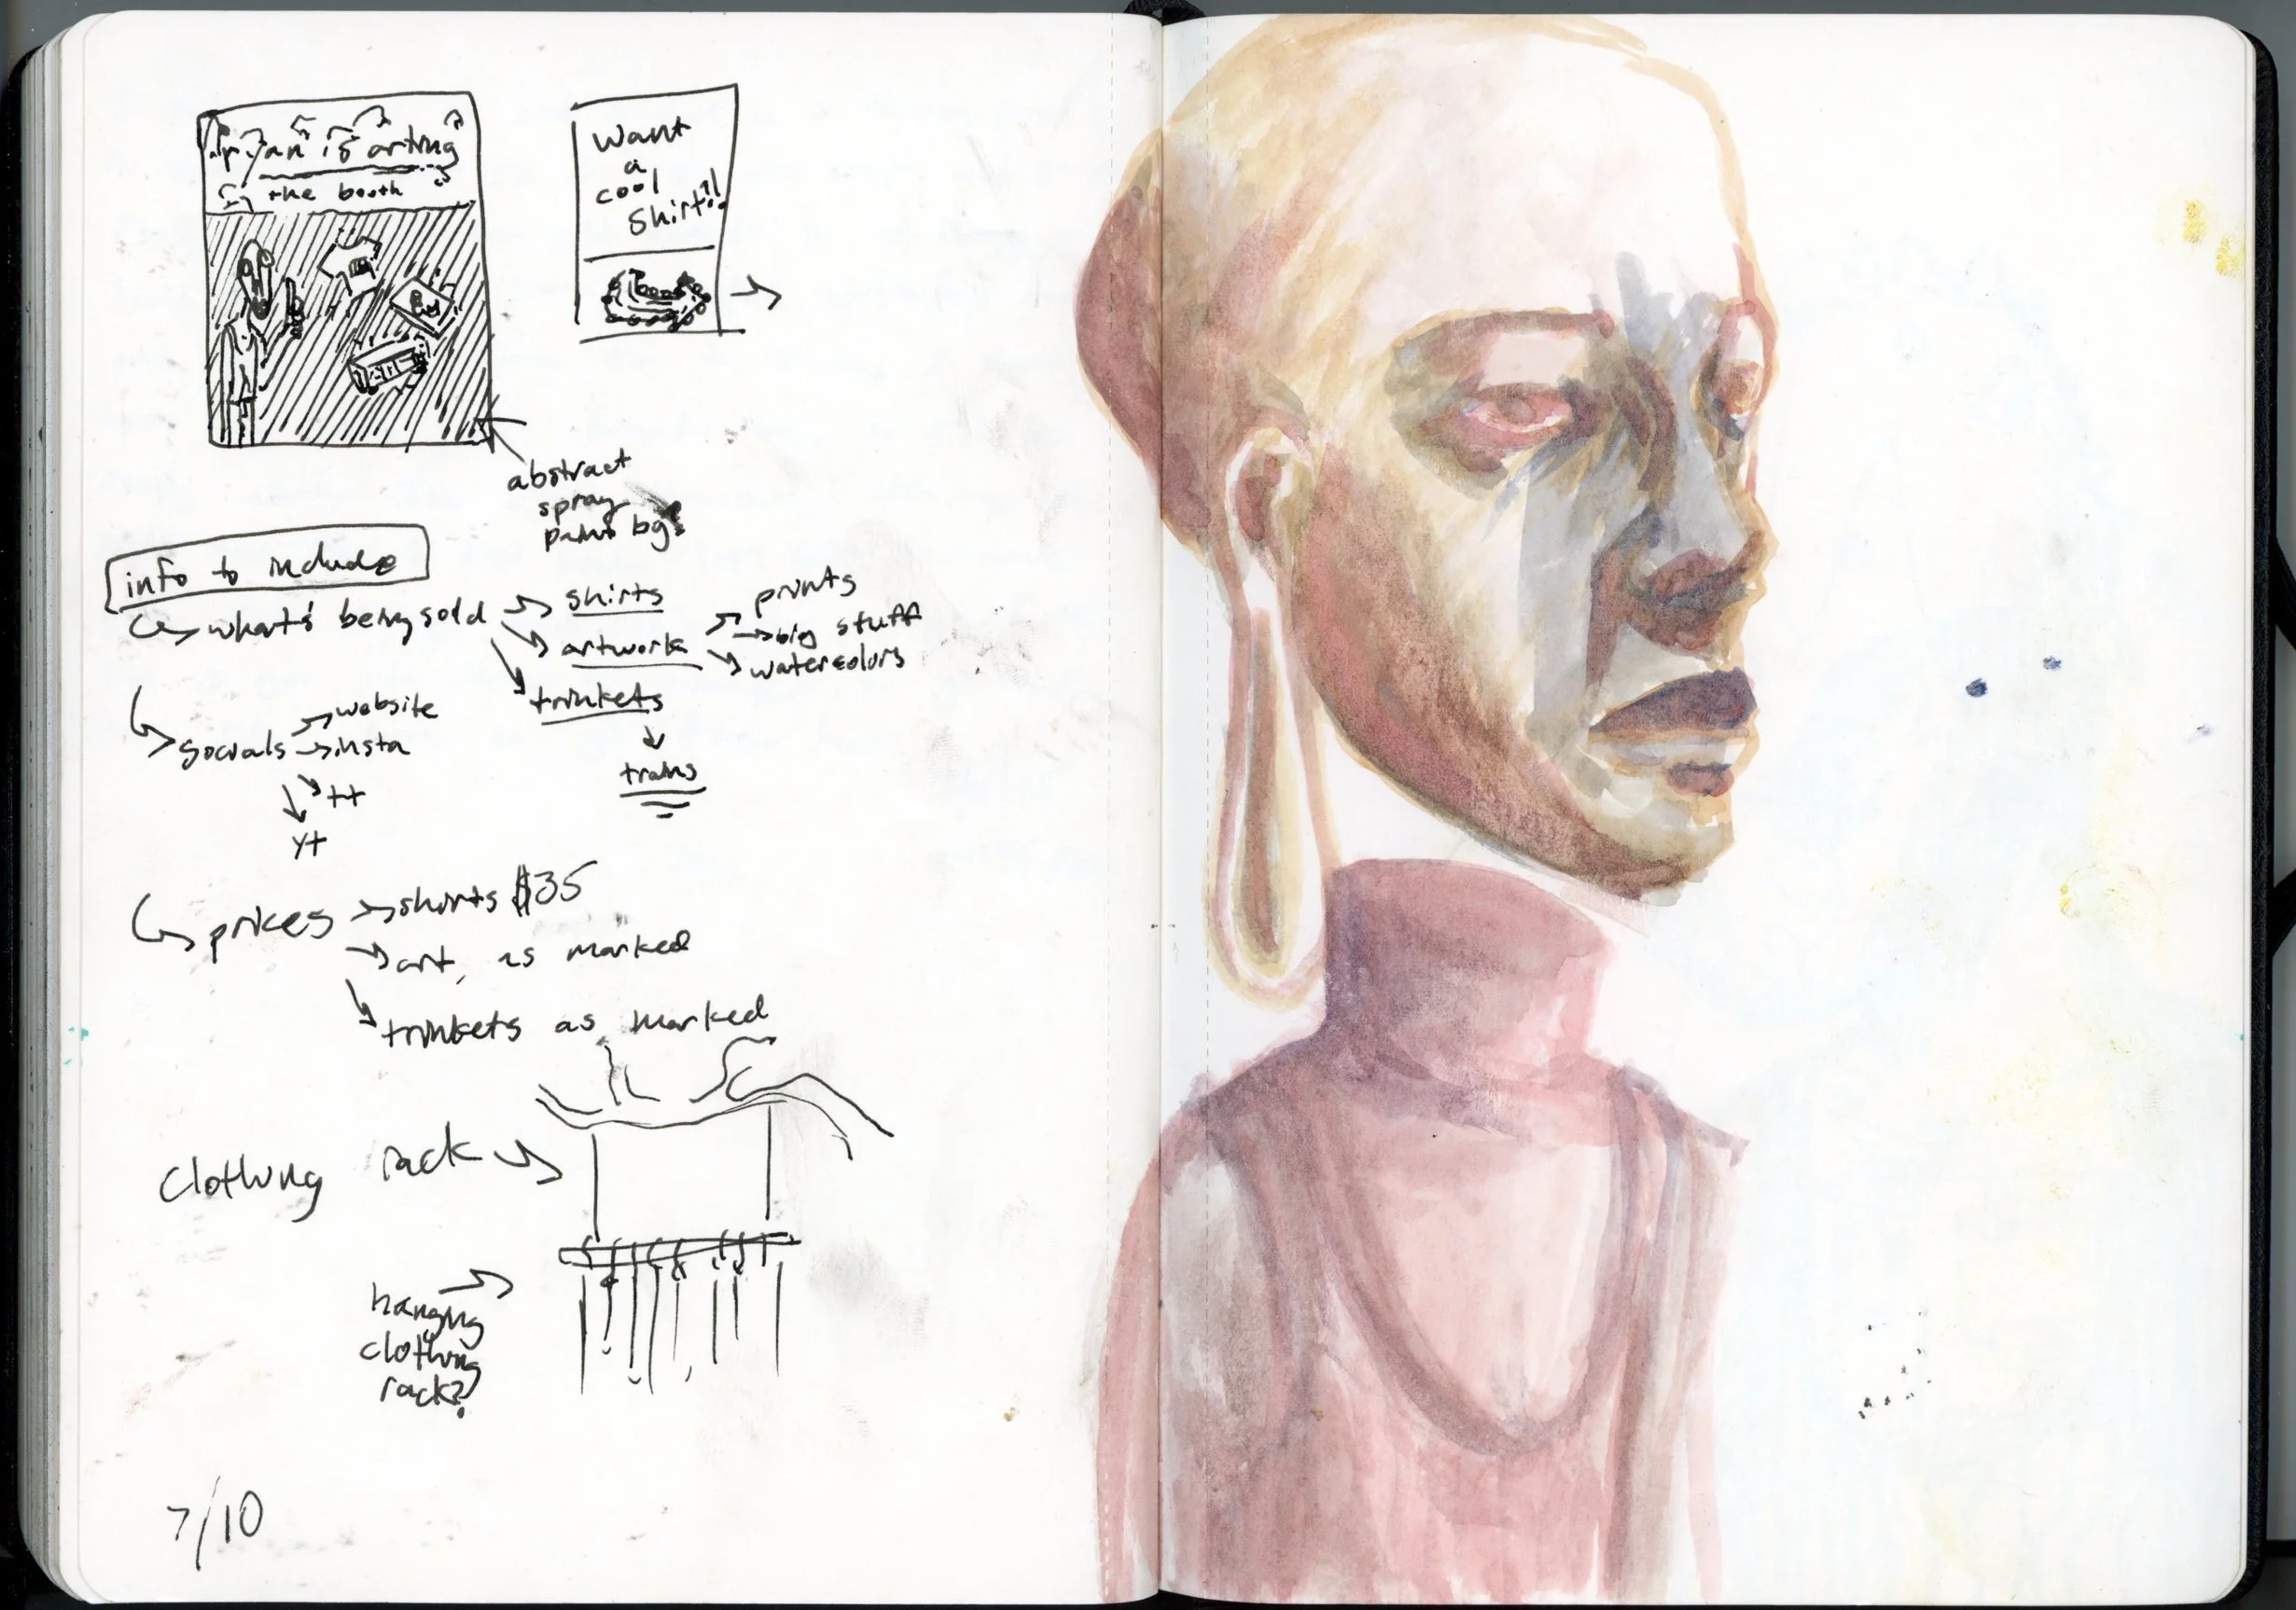 an is arting
the booth
Want
a
cool
Shirt?!
abstract
spray
paint bg?
info to include
what's being sold
shirts
artwork
prints
big stuff
watercolors
trinkets
trains
socials
website
insta
tt
yt
prices
shirts $35
art, as marked
trinkets as marked
clothing rack
hanging
clothing
rack?
7/10